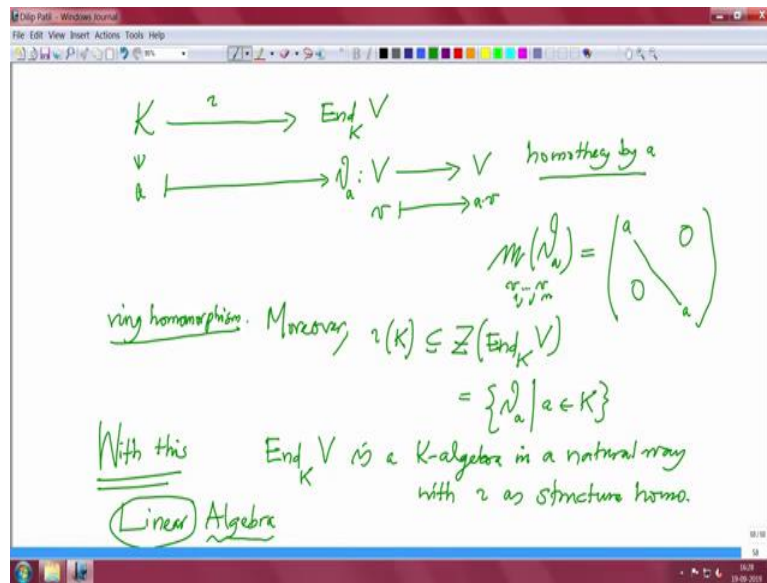 Dilip Patil - Windows Journal
File Edit View Insert Actions Tools Help
K ⟶ End_K V
a ⟼ ϑ_a : V ⟶ V homothety by a
v ⟼ a·v
m(ϑ_a) = (a 0
0 a)
v_1, …, v_n
ring homomorphism. Moreover, ι(K) ⊆ Z(End_K V)
= {ϑ_a | a ∈ K}
With this End_K V is a K-algebra in a natural way
with ι as structure homo.
Linear Algebra
16:28
19-09-2019